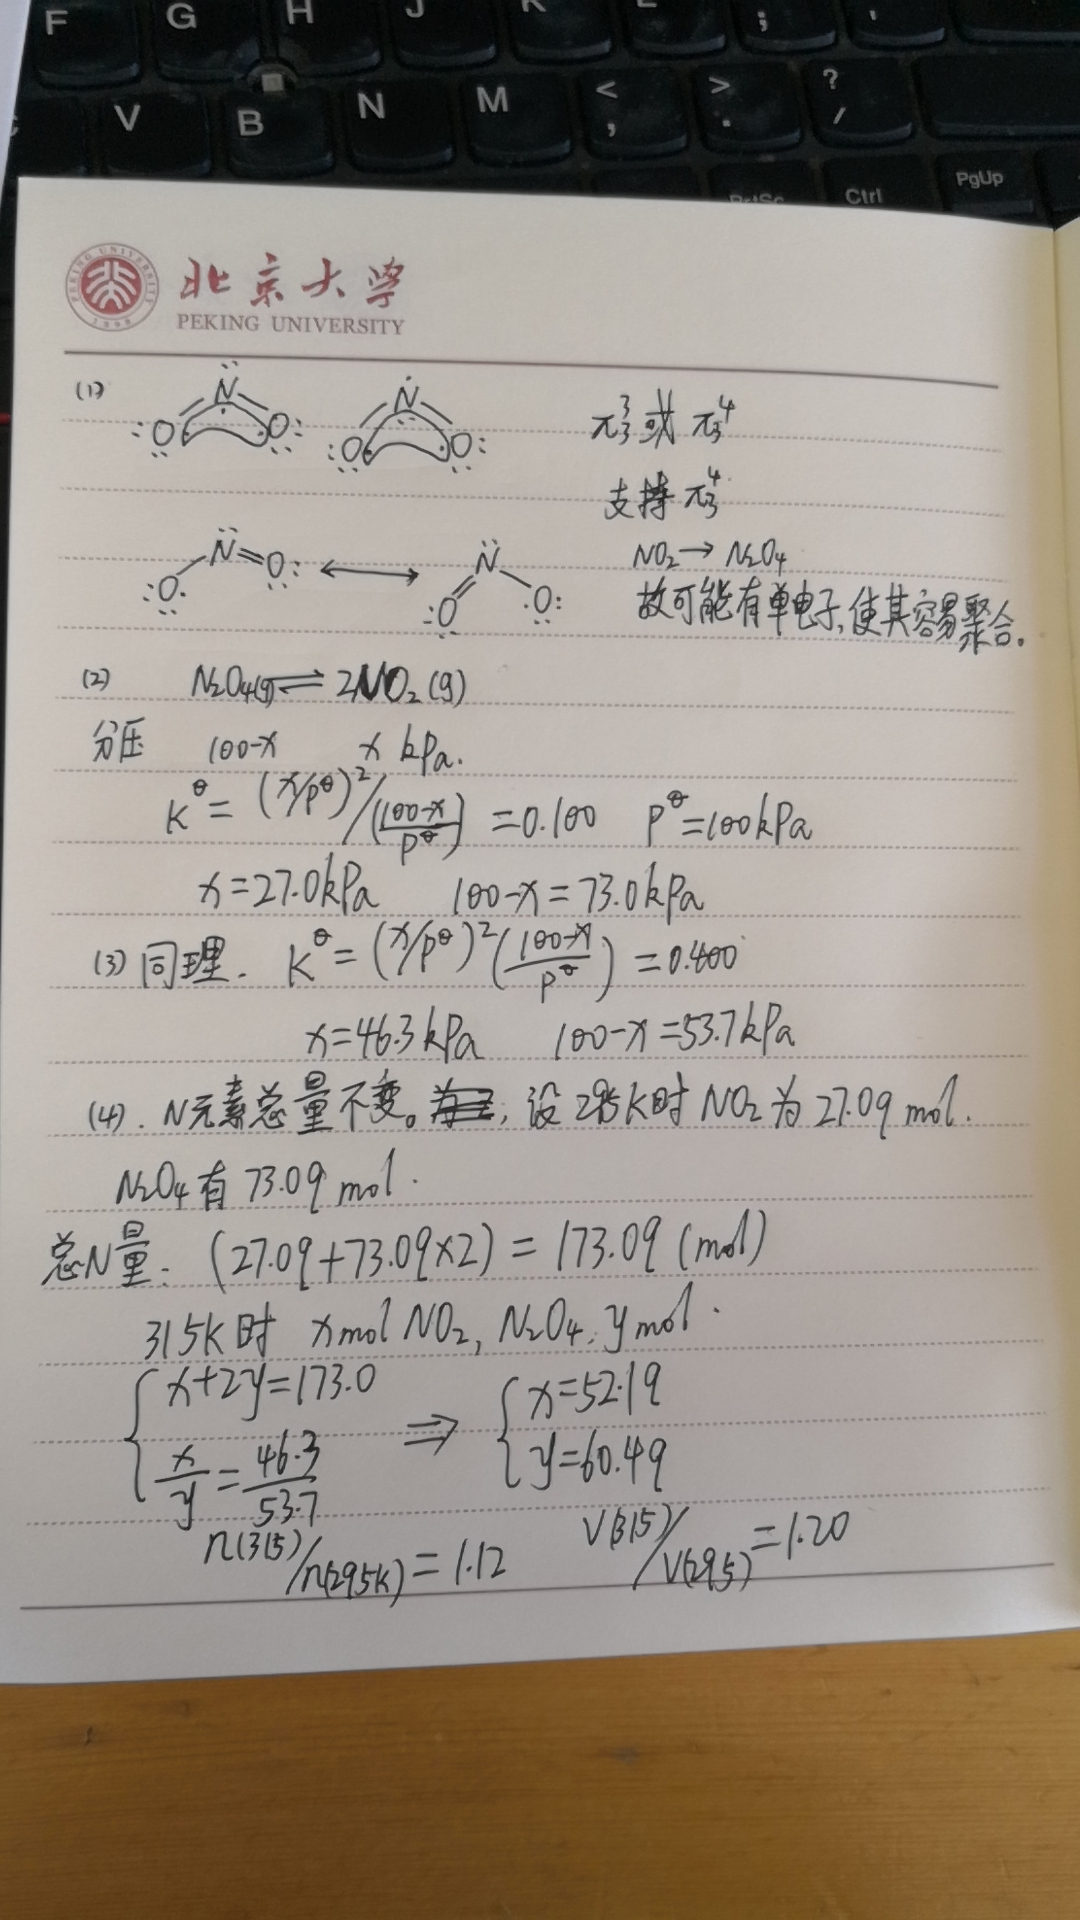 F G H J K L ; '
V B N M < , > . ? /
PrtSc Ctrl PgUp
PEKING UNIVERSITY 1898
北京大学
PEKING UNIVERSITY
(1) N O O N O O π₃³ 或 π₃⁴
支持 π₃⁴
O N O ⟷ N O O NO₂ → N₂O₄
故可能有单电子, 使其容易聚合。
(2) N₂O₄(g) ⇌ 2NO₂(g)
分压 100-x x kPa.
K^θ = (x/p^θ)²/((100-x)/p^θ) = 0.100 P^θ=100kPa
x=27.0kPa 100-x=73.0kPa
(3) 同理. K^θ = (x/p^θ)²((100-x)/p^θ) = 0.400
x=46.3kPa 100-x=53.7kPa
(4). N元素总量不变。设295K时 NO₂ 为 27.0q mol.
N₂O₄ 有 73.0q mol.
总N量. (27.0q+73.0q×2) = 173.0q (mol)
315K时 x mol NO₂, N₂O₄. y mol.
{ x+2y=173.0 ⇒ { x=52.1q
x/y = 46.3/53.7 y=60.4q
n(315)/n(295K) = 1.12 V(315)/V(295) = 1.20